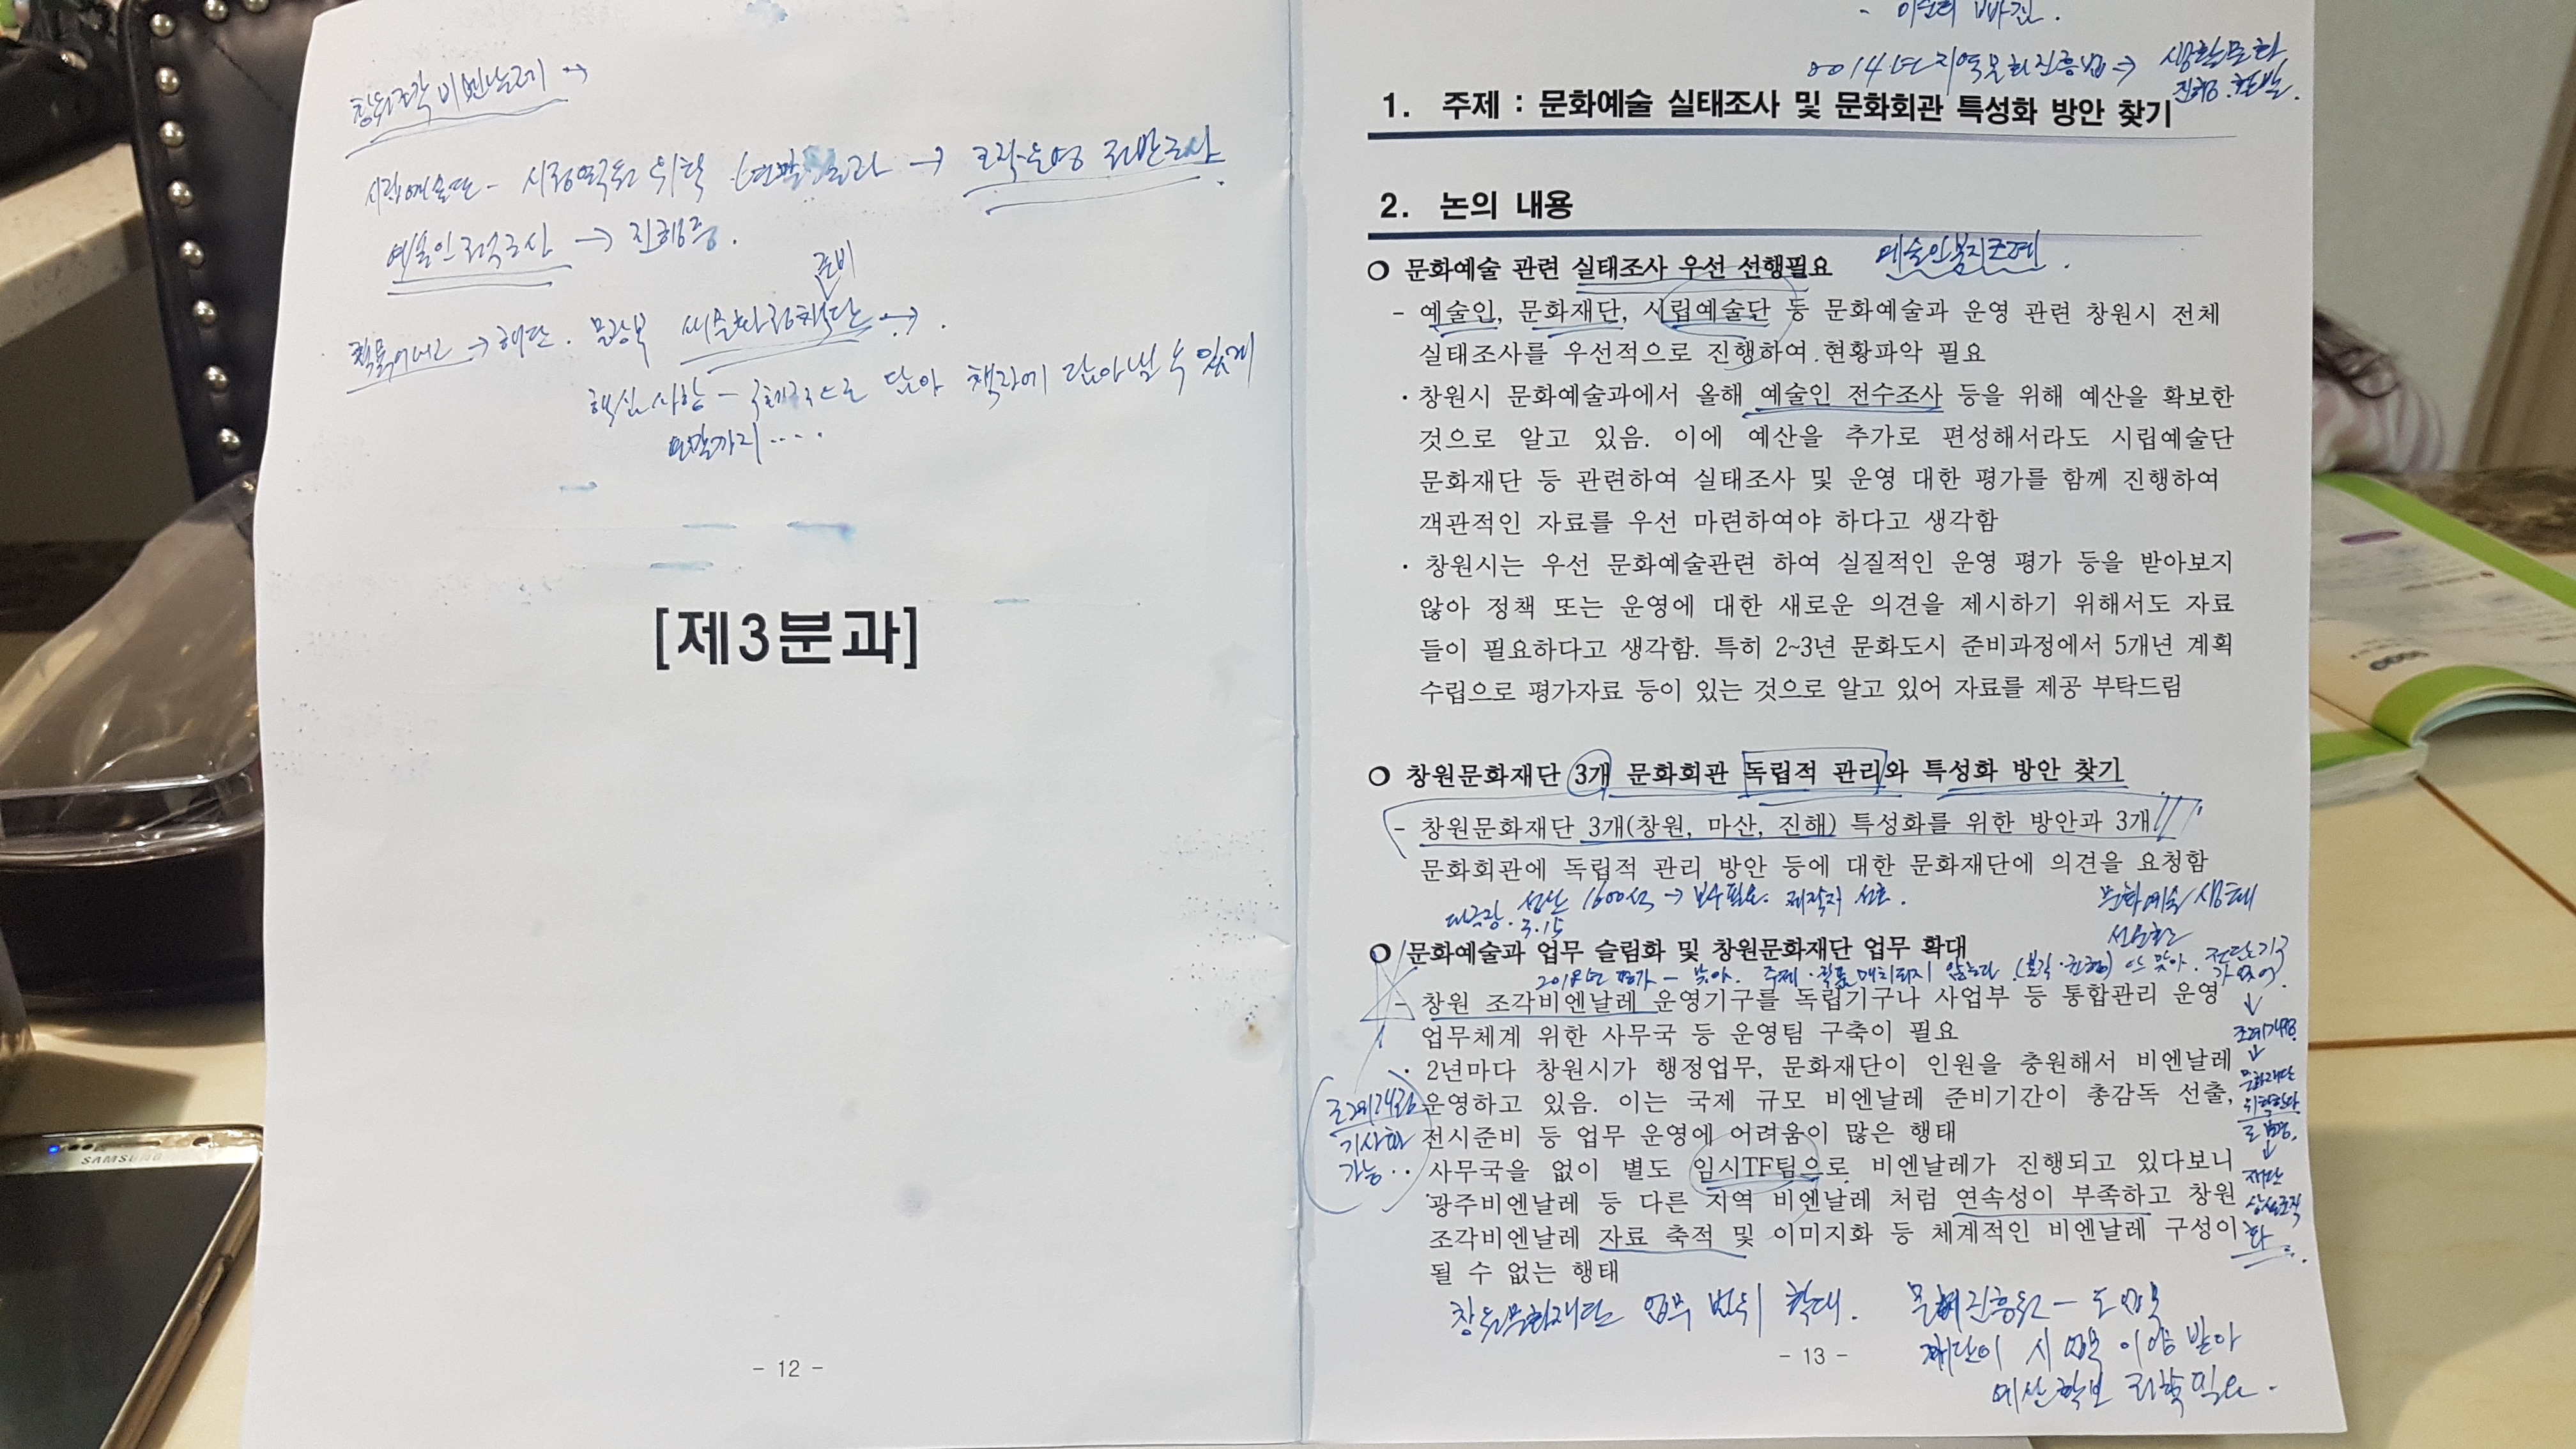 창원조각비엔날레 →
시립예술단 - 시정연구원 위탁 (연말 결과 → 조직운영 전반조사
예술인 전수조사 → 진행중.
준비
→ 해단. 문광부
핵심사항 - 담아 책자에 담아낼 수 있게
연말까지 ....
[제3분과]
- 12 -
SAMSUNG
- 이순희 빠짐.
2014년 지역문화진흥법 → 생활문화
진흥.
1. 주제 : 문화예술 실태조사 및 문화회관 특성화 방안 찾기
2. 논의 내용
예술인복지조례.
○ 문화예술 관련 실태조사 우선 선행필요
- 예술인, 문화재단, 시립예술단 등 문화예술과 운영 관련 창원시 전체
실태조사를 우선적으로 진행하여 현황파악 필요
· 창원시 문화예술과에서 올해 예술인 전수조사 등을 위해 예산을 확보한
것으로 알고 있음. 이에 예산을 추가로 편성해서라도 시립예술단
문화재단 등 관련하여 실태조사 및 운영 대한 평가를 함께 진행하여
객관적인 자료를 우선 마련하여야 하다고 생각함
· 창원시는 우선 문화예술관련 하여 실질적인 운영 평가 등을 받아보지
않아 정책 또는 운영에 대한 새로운 의견을 제시하기 위해서도 자료
들이 필요하다고 생각함. 특히 2~3년 문화도시 준비과정에서 5개년 계획
수립으로 평가자료 등이 있는 것으로 알고 있어 자료를 제공 부탁드림
○ 창원문화재단 3개 문화회관 독립적 관리와 특성화 방안 찾기
- 창원문화재단 3개(창원, 마산, 진해) 특성화를 위한 방안과 3개
문화회관에 독립적 관리 방안 등에 대한 문화재단에 의견을 요청함
대극장. 성산 1600석 → 보수필요. 제작자 선호.
3.15
문화예술 생태
선순환
○ 문화예술과 업무 슬림화 및 창원문화재단 업무 확대
2018년 평가 - 낮아. 주제·작품 매치되지 않는다 전담기구
가 없어.
- 창원 조각비엔날레 운영기구를 독립기구나 사업부 등 통합관리 운영
업무체계 위한 사무국 등 운영팀 구축이 필요
↓
조례개정
↓
문화재단
위탁한다
로 변경.
↓
재단
상설조직
화
· 2년마다 창원시가 행정업무, 문화재단이 인원을 충원해서 비엔날레
운영하고 있음. 이는 국제 규모 비엔날레 준비기간이 총감독 선출,
전시준비 등 업무 운영에 어려움이 많은 행태
조례개정
기사화
가능..
· 사무국을 없이 별도 임시TF팀으로 비엔날레가 진행되고 있다보니
광주비엔날레 등 다른 지역 비엔날레 처럼 연속성이 부족하고 창원
조각비엔날레 자료 축적 및 이미지화 등 체계적인 비엔날레 구성이
될 수 없는 행태
창원문화재단 업무 범위 확대.
문화예진흥원 - 도 업무
재단이 시 업무 이양 받아
예산확보 필요.
- 13 -